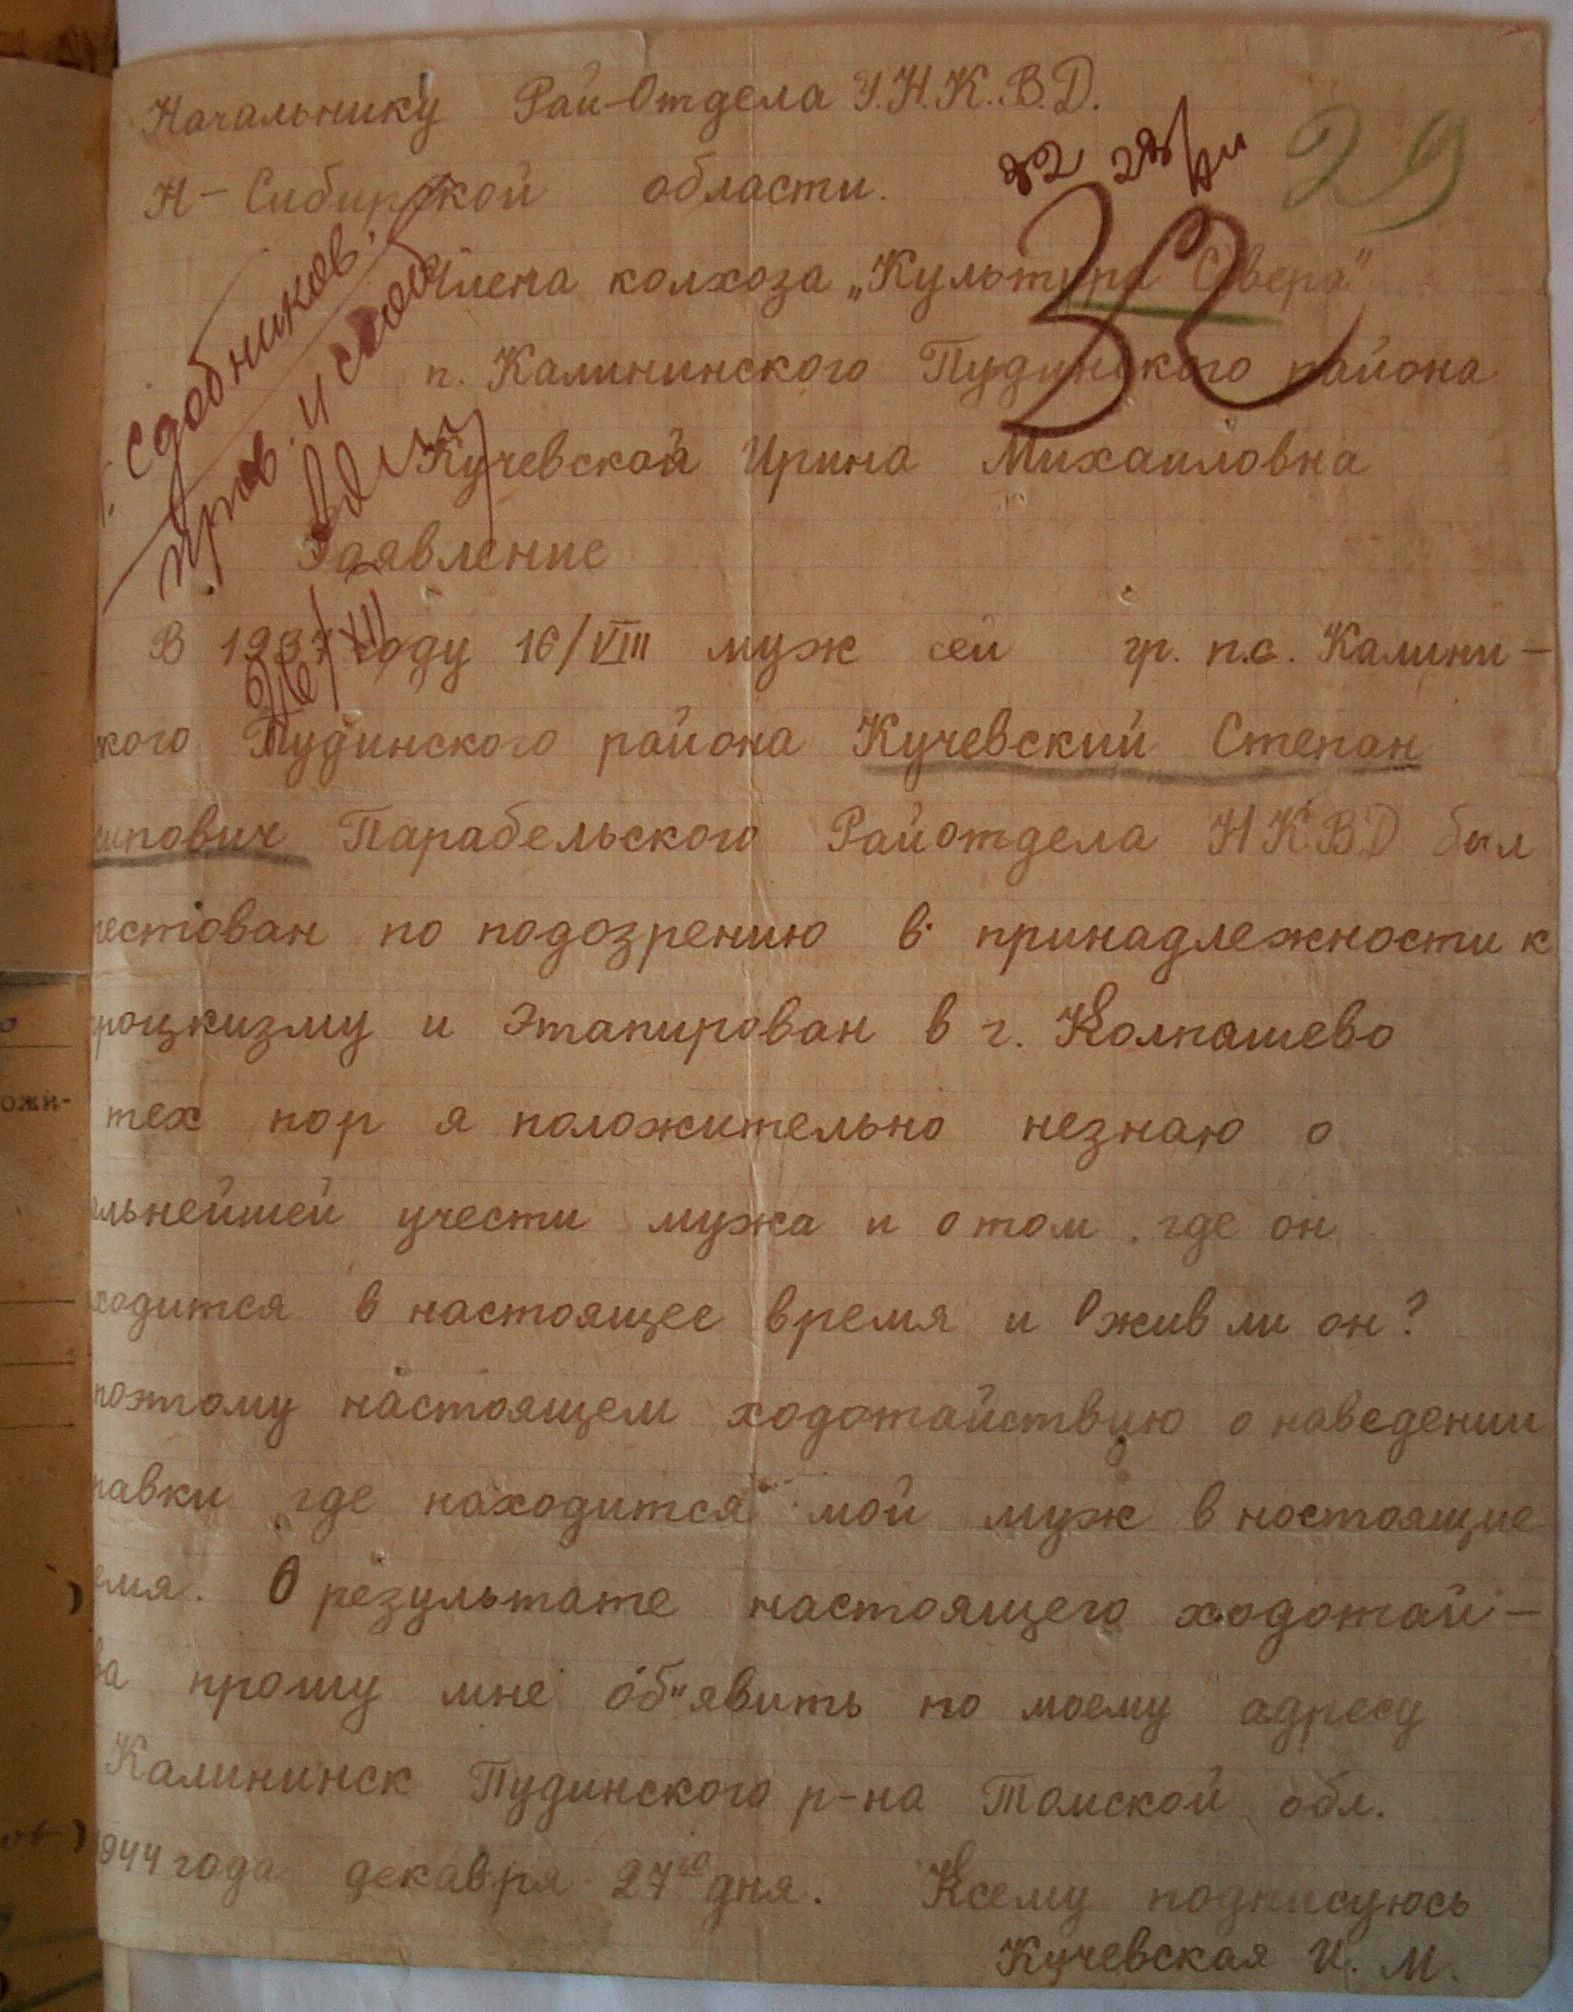 Начальнику Рай-Отдела У.Н.К.В.Д.
Н-Сибирской области.
32
29
32
Члена колхоза „Культура Севера"
п. Калининского Пудинского района
Кучевской Ирина Михаиловна
Заявление
В 1937 году 16/VIII муж сей гр. п.с. Калини-
ского Пудинского района Кучевский Степан
сипович Парабельского Райотдела НКВД был
рестован по подозрению в принадлежности к
роцкизму и этапирован в г. Колпашево
тех пор я положительно незнаю о
альнейшей учести мужа и о том где он
ходится в настоящее время и жив ли он?
поэтому настоящем ходотайствую о наведении
равки где находится мой муж в ностоящие
емя. О результате настоящего ходотай-
ва прошу мне об"явить по моему адресу
Калининск Пудинского р-на Томской обл.
1944 года декабря 27го дня. Ксему подписуюсь
Кучевская И. М.